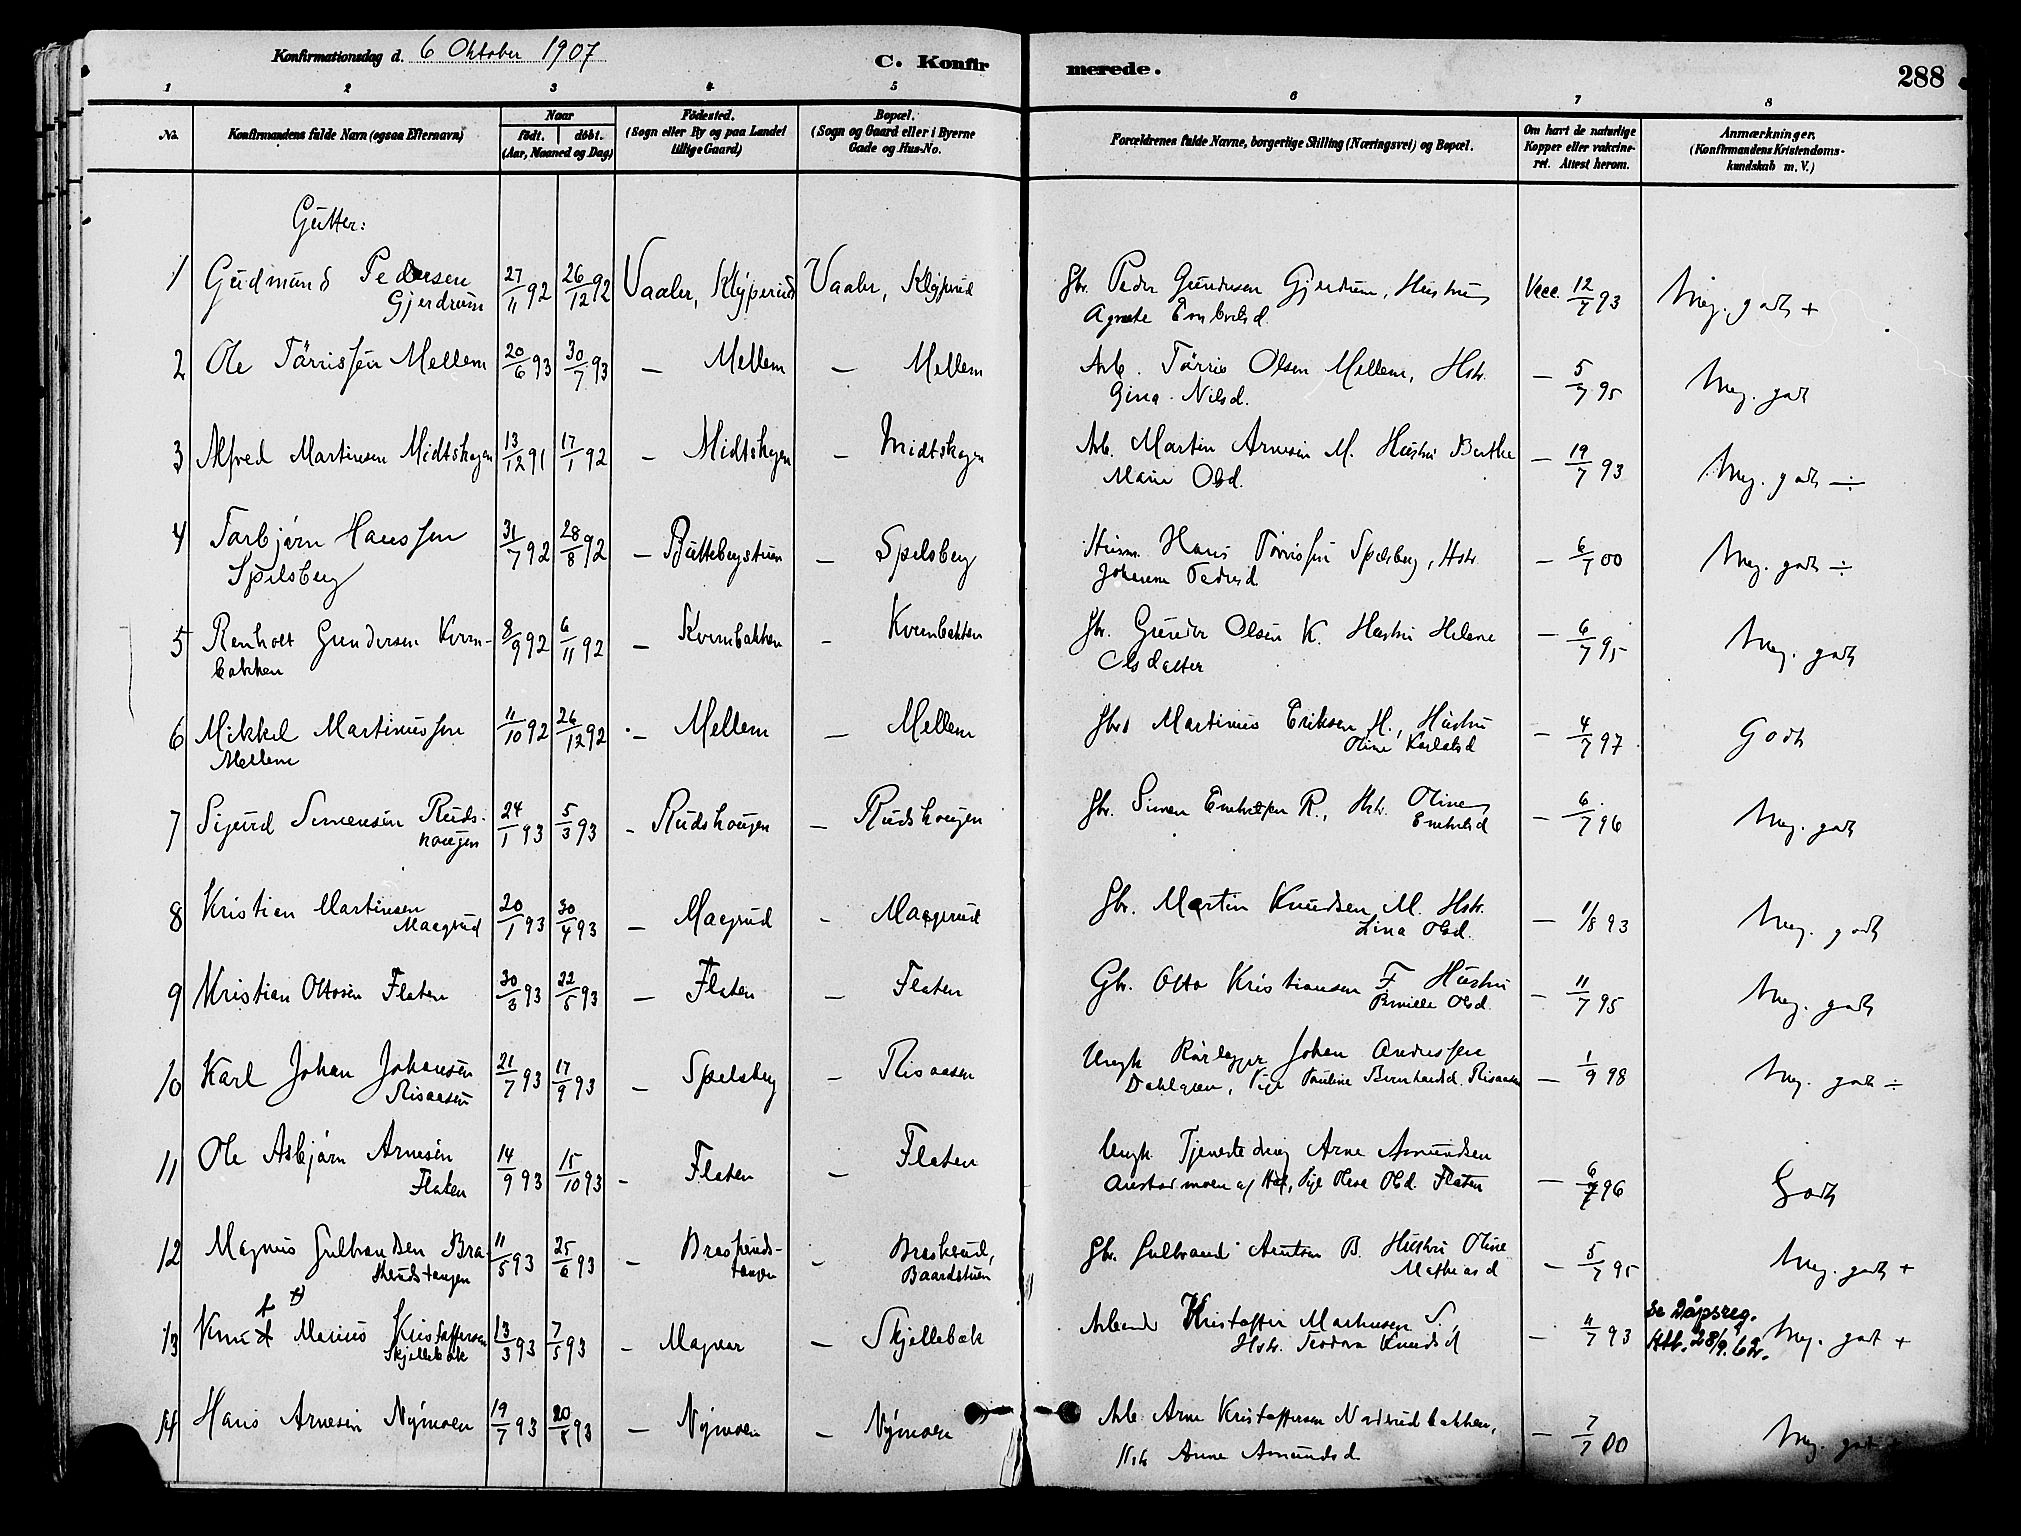 Konfirmationsdag d. 6 Oktober 1907
C. Konfirmerede.
288
1 2 3 4 5 6 7 8
No. Konfirmandens fulde Navn (ogsaa Efternavn) Naar født. døbt. (Aar, Maaned og Dag) Fødested. (Sogn eller By og paa Landet tillige Gaard) Bopæl. (Sogn og Gaard eller i Byerne Gade og Hus-No. Forældrenes fulde Navne, borgerlige Stilling (Næringsvei) og Bopæl. Om havt de naturlige Kopper eller vakcineret. Attest herom. Anmærkninger. (Konfirmandens Kristendomskundskab m. V.)
Gutter:
1 Gudmund Pedersen 27/11 92 26/12 92 Vaaler, Klyperud Vaaler, Klyperud Gbr. Peder Gundersen Gjerdrum, Hustru Vacc. 12/7 93 Meg. godt +
Gjerdrum Agnete Embretsd.
2 Ole Tørrissen Mellem 20/6 93 30/7 93 — Mellem — Mellem Arb. Tørris Olsen Mellem, Hstr. — 5/7 95 Meg. godt
Gina Nilsd.
3 Alfred Martinsen Midtskogen 13/12 91 17/1 92 — Midtskogen — Midtskogen Arb. Martin Arnesen M. Hustru Berthe — 19/7 93 Meg. godt ÷
Marie Olsd.
4 Torbjørn Hanssen 31/7 92 28/8 92 — — Spelsberg Husm. Hans Tørrissen Spelsberg, Hstr. — 6/7 00 Meg. godt ÷
Spelsberg Johanne Pedersd.
5 Renholt Gundersen Kvern- 8/9 92 6/11 92 — Kvernbakken — Kvernbakken Gbr. Gunder Olsen K. Hustru Helene — 6/7 95 Meg. godt
bakken Olsdatter
6 Mikkel Martinussen 11/10 92 26/12 92 — Mellem — Mellem Gbr. Martinus Eriksen M., Hustru — 4/7 97 Godt
Mellem Oline
7 Sigurd Simensen Ruds- 24/1 93 5/3 93 — Rudshaugen — Rudshaugen Gbr. Simen Embretsen R., Hstr. Oline — 6/7 96 Meg. godt
haugen Embretsd
8 Kristian Martinsen 20/1 93 30/4 93 — Maagerud — Maagerud Gbr. Martin Knudsen M. Hstr. — 1/8 93 Meg. godt
Maagerud Lina Olsd.
9 Kristian Ottosen Flaten 30/3 93 22/5 93 — Flaten — Flaten Gbr. Otto Kristiansen F. Hustru — 11/7 95 Meg. godt
Pernille Olsd.
10 Karl Johan Johansen 21/7 93 17/9 93 — Spelsberg — Risaasen Ungk. Rørlegger Johan Andersen — 1/9 98 Meg. godt ÷
Risaasen Dahlgren, Pige Pauline Bernhardsd. Risaasen
11 Ole Asbjørn Arnesen 14/9 93 15/10 93 — Flaten — Flaten Ungk. Tjenestedreng Arne Amundsen — 6/7 96 Godt
Flaten af Hof, Pige Olsd. Flaten
12 Magnus Gulbrandsen Bra- 11/5 93 25/6 93 — Braskeruds- — Braskerud, Gbr. Gulbrand B. Hustru Oline — 5/7 95 Meg. godt +
skerudstangen tangen Baardstuen Mathiasd
13 Knut Marius Kristoffersen 13/3 93 7/5 93 — — Skjellebæk Arbeid. Kristoffer Markusen S., — 11/7 93 Se Dåpsreg. Meg. godt +
Skjellebæk Hstr. Teodora Knudsd Att. 28/9. 62.
14 Hans Arnesen Nymoen 19/7 93 20/8 93 — Nymoen — Nymoen Arb. Arne Kristoffersen — 7/7 00 Meg. godt
Hstr. Anne Amundsd